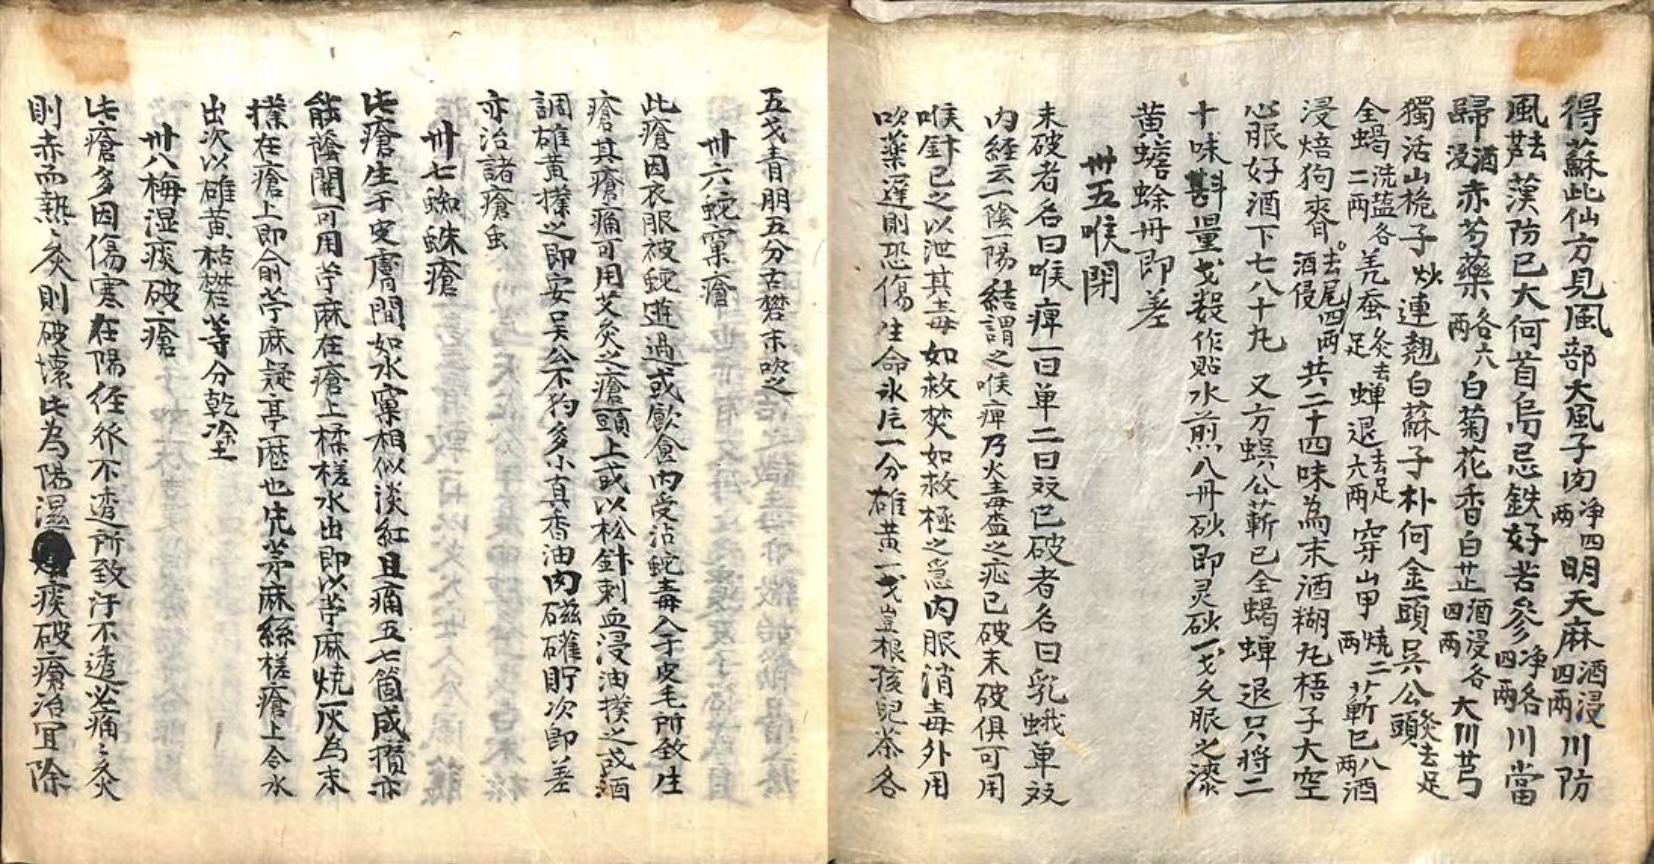 得蘇此仙方見風部大風子肉净四兩明天麻酒浸四兩川防
風去芦漢防已大何首烏忌鉄好苦參净各四兩川當
歸酒浸赤芍藥各六兩白菊花香白芷酒浸各四兩大川芎
獨活山梔子炒連翹白蘇子朴何金頭吴公頭炙去足
全蝎洗塩各二兩羌蚕炙去足蟬退去足六兩穿山甲燒二兩蘄巳八兩酒
浸焙狗脊去尾四兩酒侵共二十四味為末酒糊丸梧子大空
心服好酒下七八十丸又方蜈公蘄已全蝎蟬退只將二
十味斟量戈数作貼水煎八丹砂即灵砂一戈久服之漆
黄蟾蜍丹即差
卅五喉閉
未破者名曰喉痺一曰单二曰双已破者名曰乳蛾单双
内經云一陰一陽結謂之喉痺乃火毒盛之症已破未破俱可用
喉針已之以泄其毒如救焚如救極之急内服消毒外用
吹藥遲則恐傷生命氷片一分雄黄一戈豈根孩児茶各
五戈青朋五分古礬末吹之
卅六蛇窠瘡
此瘡因衣服被蛇遊過或飲食内受沾蛇毒入于皮毛所致生
瘡其癢痛可用艾灸之瘡頭上或以松針刺血浸油搽之或酒
調雄黄搽之即安吴公不狗多小真香油内磁礶貯次即差
亦治諸瘡虫
卅七蜘蛛瘡
此瘡生于皮膚間如水窠相似淡紅且痛五七箇成攢亦
能蔭開可用苧麻在瘡上揉槎水出即以苧麻燒灰為末
搽在瘡上即俞苧麻疑亭歴也先苧麻絲槎瘡上令水
出次以雄黄枯礬等分乾塗
卅八梅湿痰破瘡
此瘡多因傷寒在陽経終不透所致汗不透坐痛之久
則赤而熱久則破壞此為陽湿痰破瘡治宜除